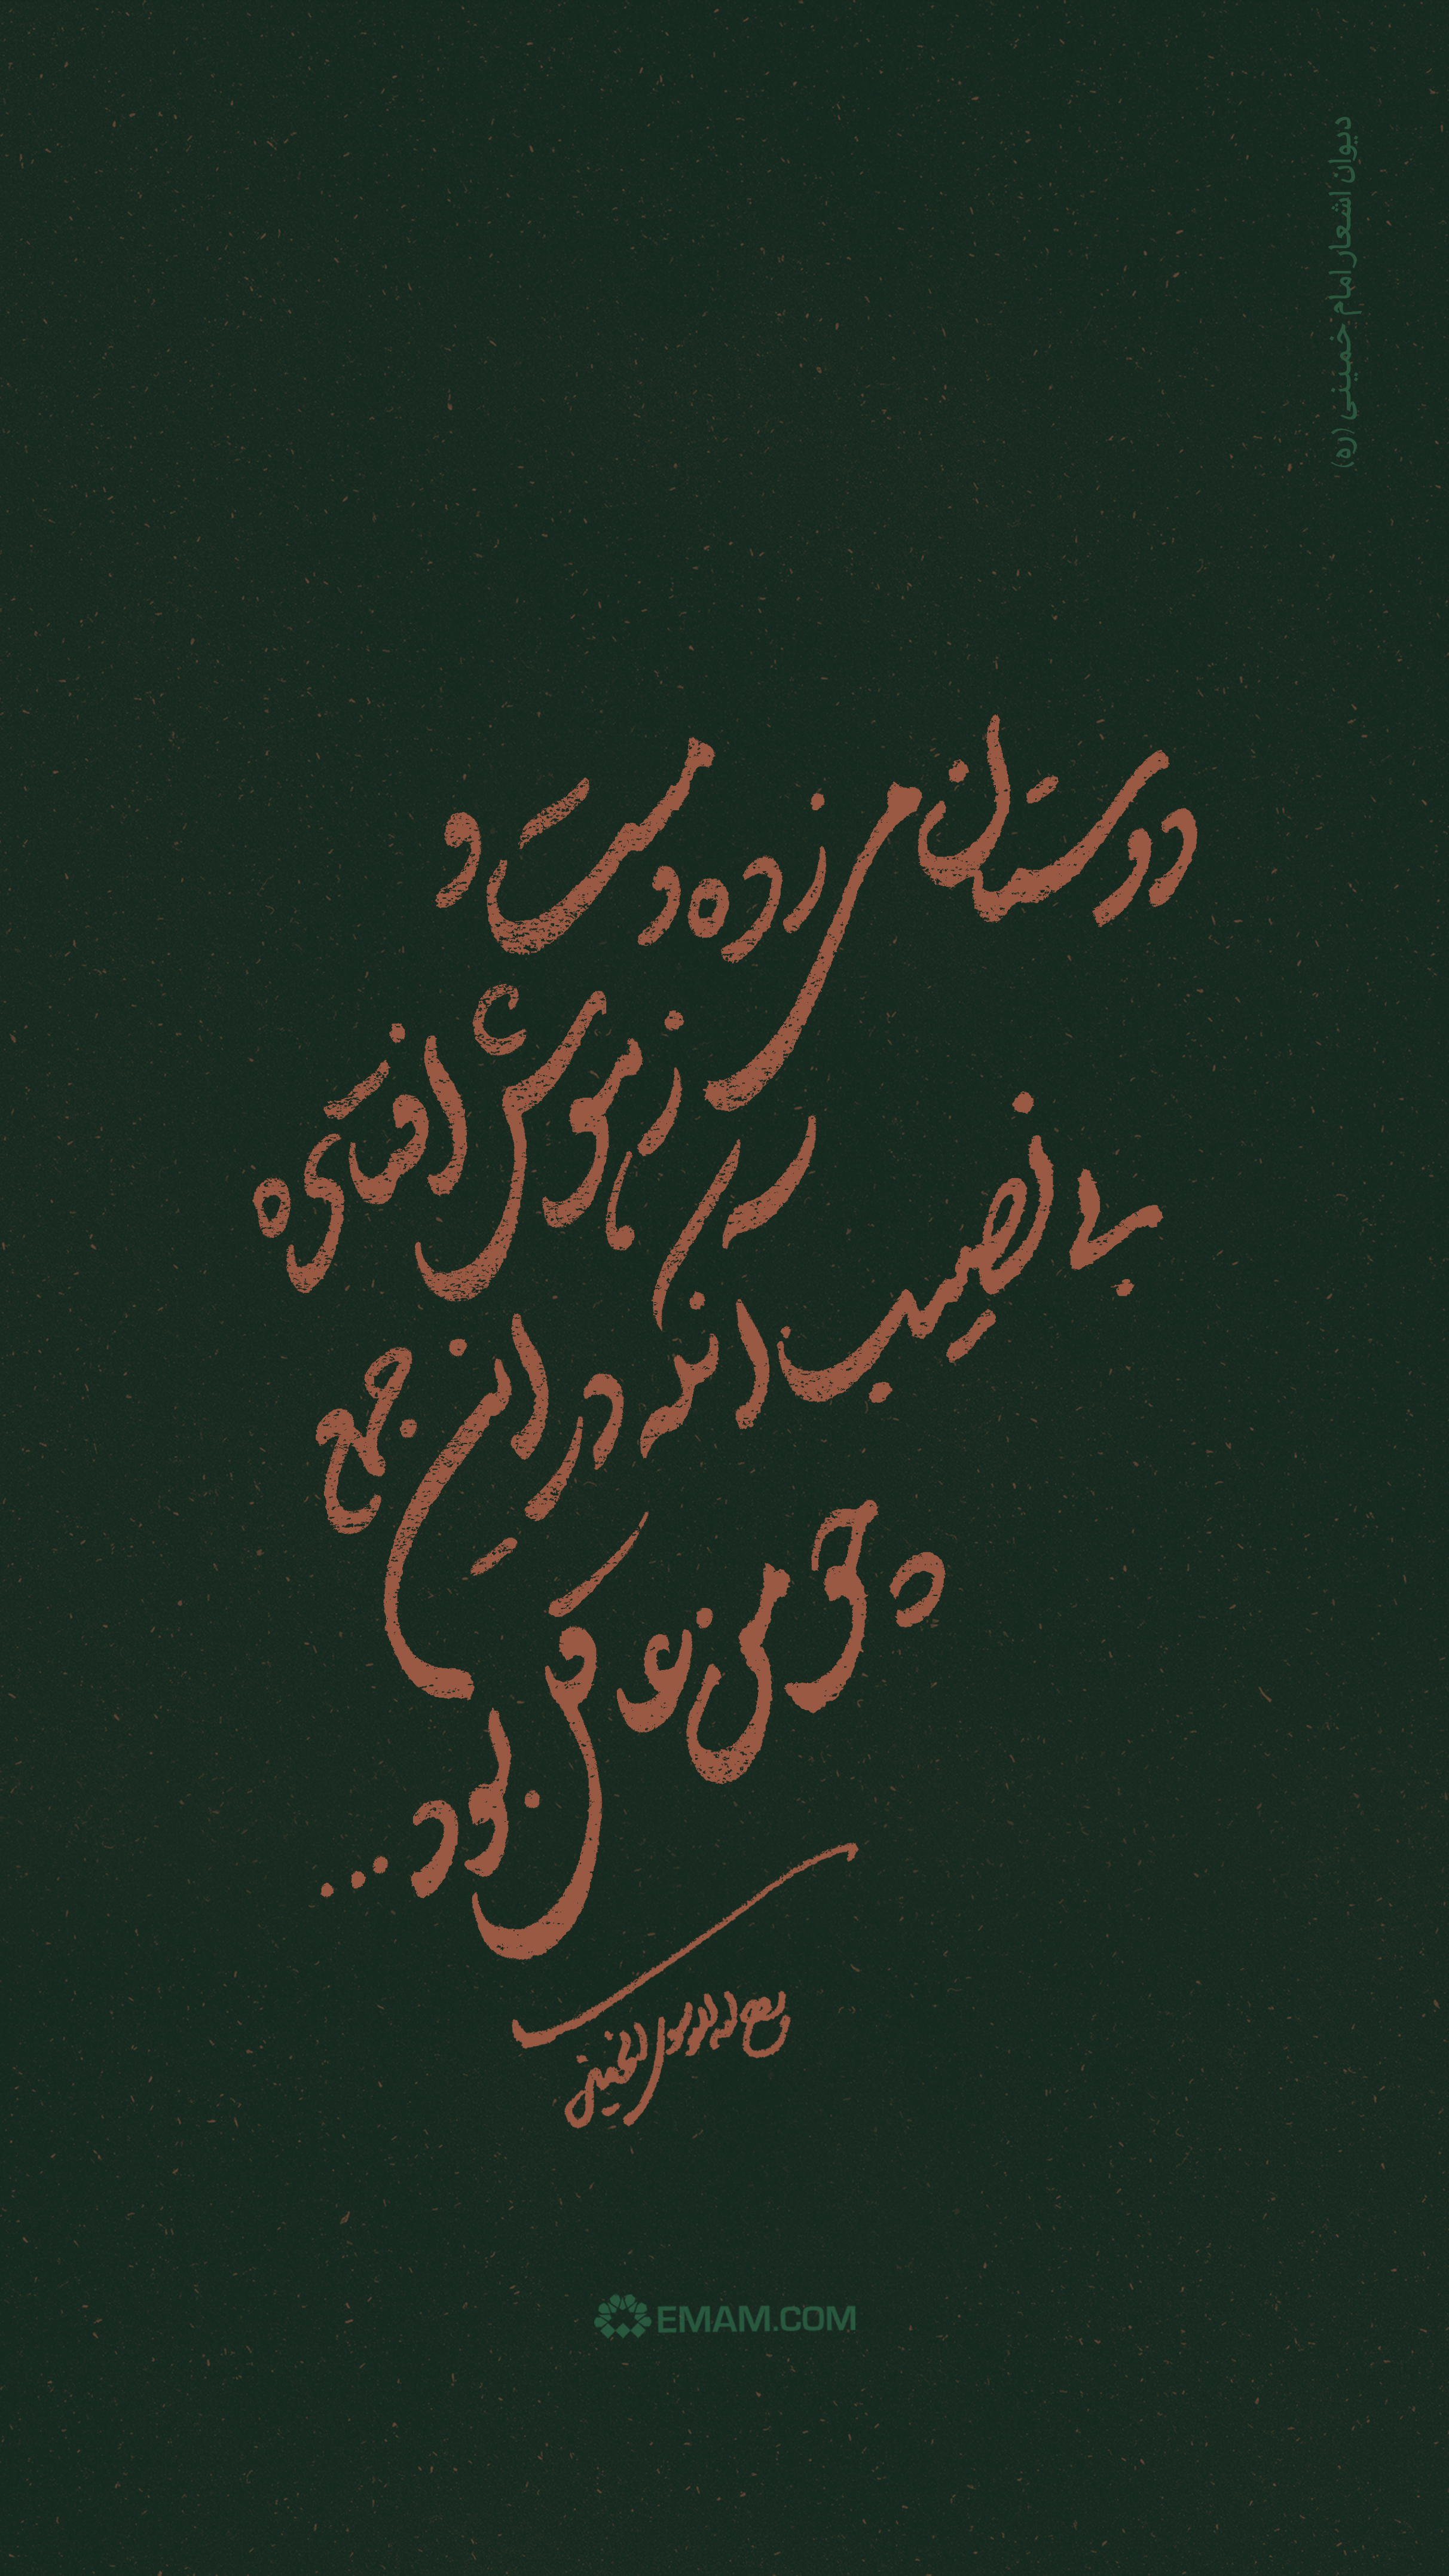 دیوان اشعار امام خمینی (ره)
دوستان می زده و مست و
ز هوش افتاده
بی نصیب آنکه در این جمع
چو من عاقل بود...
روح الله الموسوی الخمینی
EMAM.COM